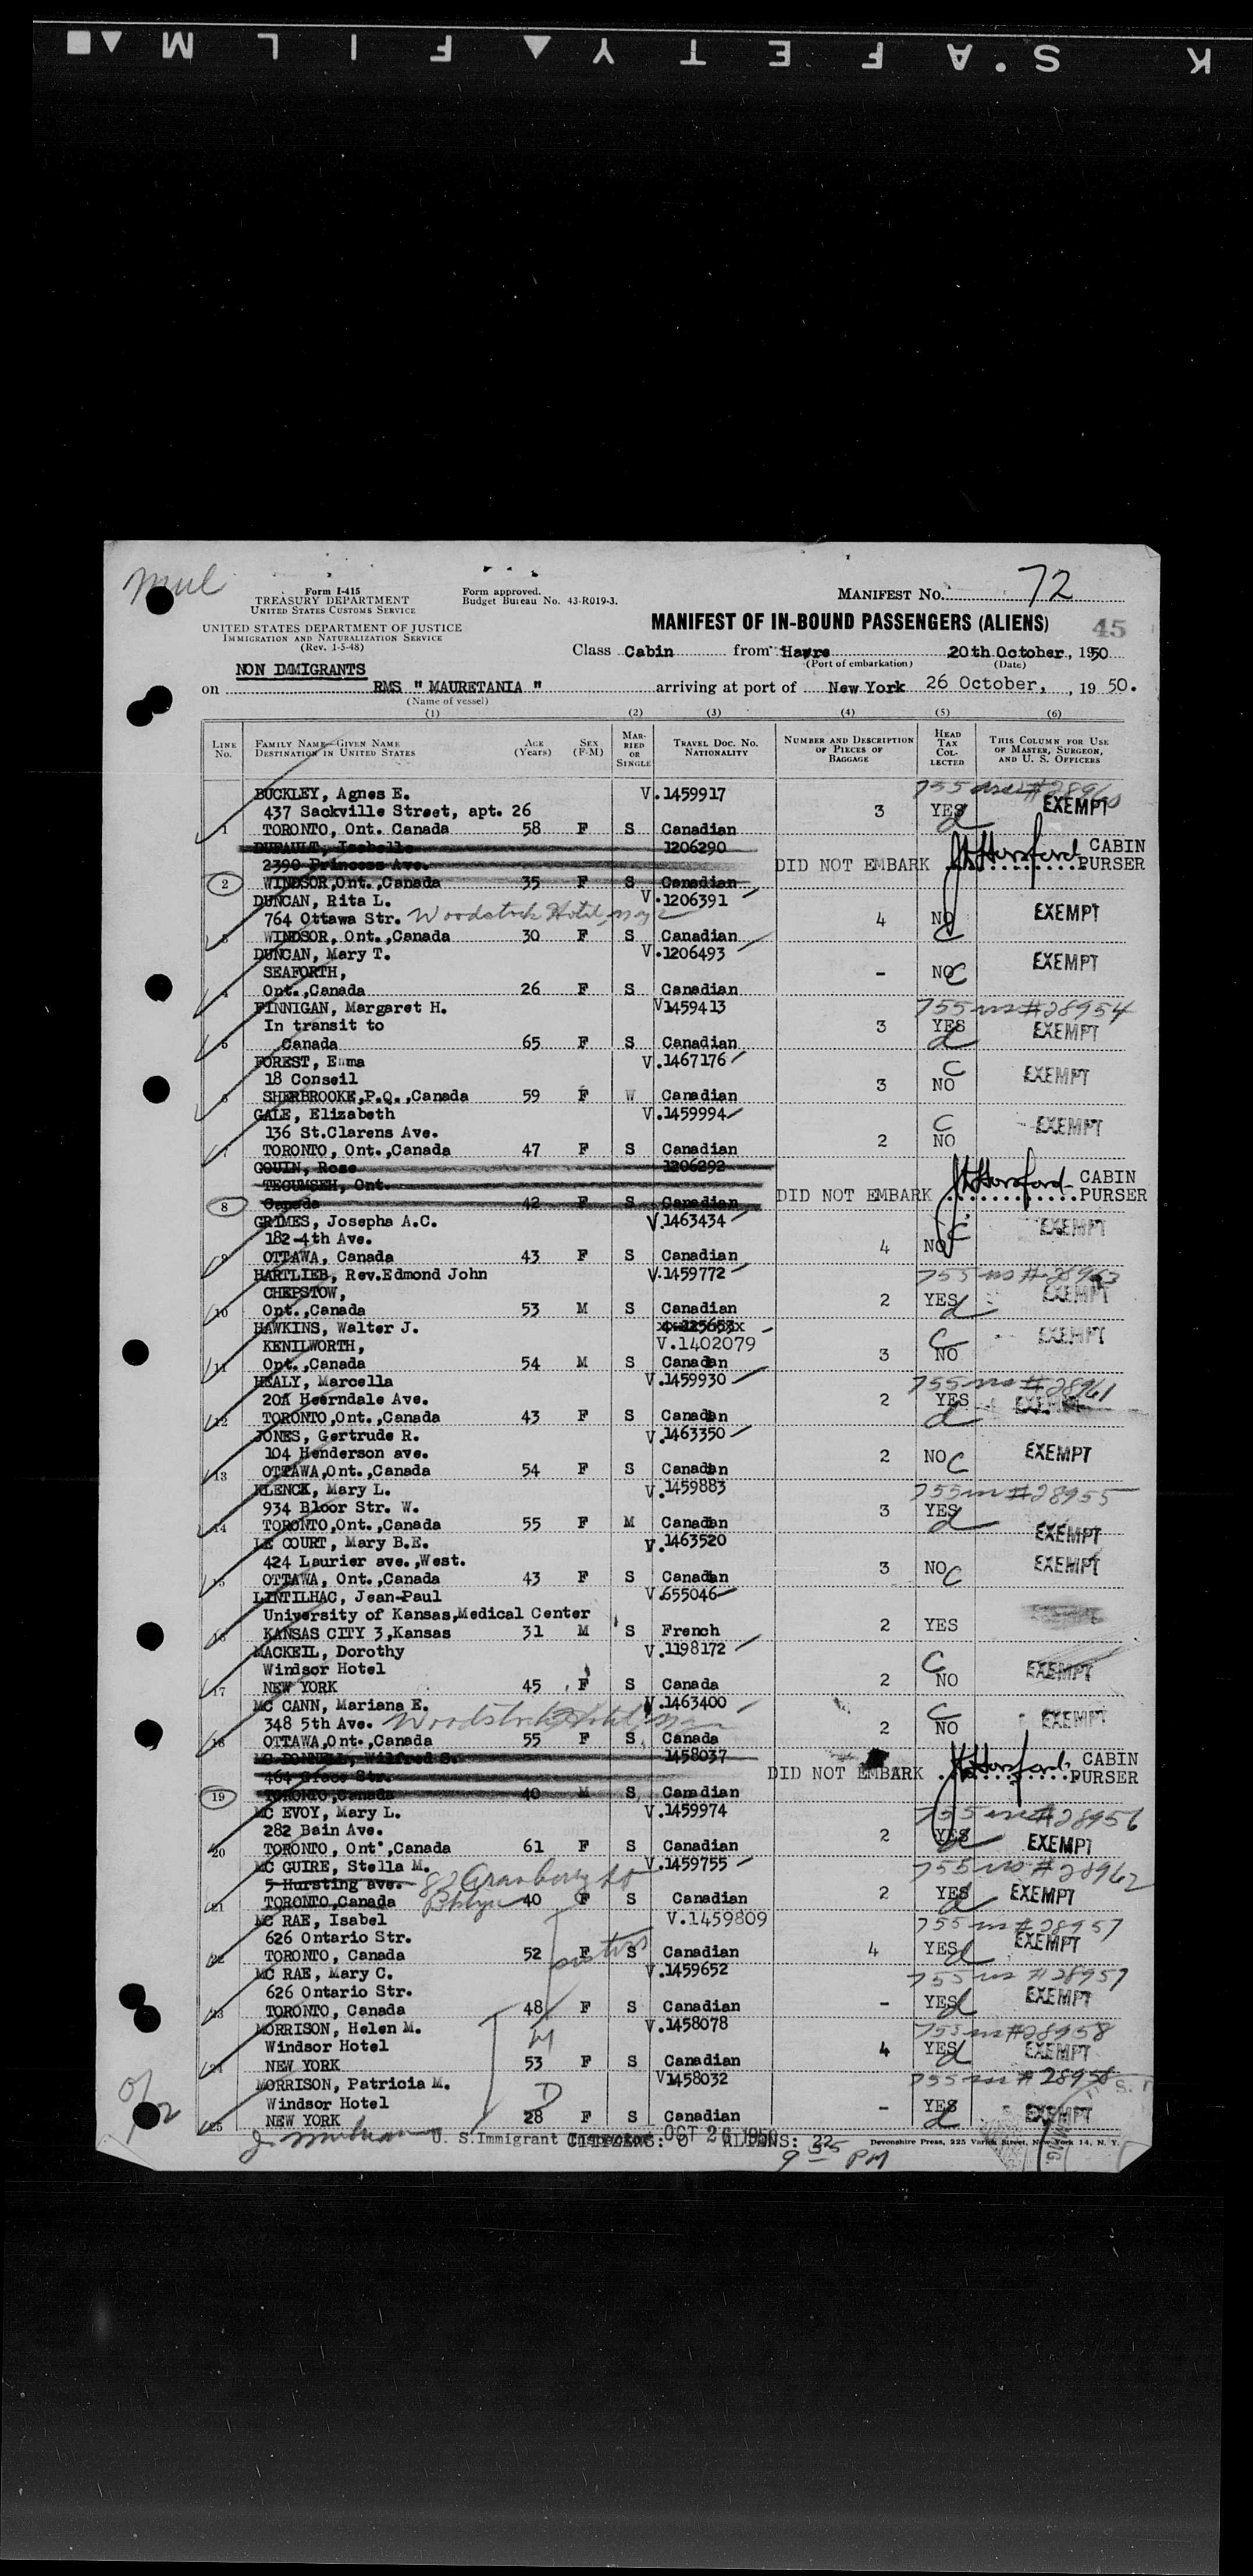 K S.A F E T Y ▲ F I L M
mul
Form I-415
TREASURY DEPARTMENT
UNITED STATES CUSTOMS SERVICE
Form approved.
Budget Bureau No. 43-R019-3.
MANIFEST NO. 72
UNITED STATES DEPARTMENT OF JUSTICE
IMMIGRATION AND NATURALIZATION SERVICE
(Rev. 1-5-48)
MANIFEST OF IN-BOUND PASSENGERS (ALIENS) 45
Class Cabin from Havre 20th October, 1950
(Port of embarkation) (Date)
NON IMMIGRANTS
on RMS " MAURETANIA " arriving at port of New York 26 October, , 19 50.
(Name of vessel)
(1) (2) (3) (4) (5) (6)
LINE NO. FAMILY NAME—GIVEN NAME DESTINATION IN UNITED STATES AGE (Years) SEX (F-M) MARRIED OR SINGLE TRAVEL DOC. NO. NATIONALITY NUMBER AND DESCRIPTION OF PIECES OF BAGGAGE HEAD TAX COLLECTED THIS COLUMN FOR USE OF MASTER, SURGEON, AND U. S. OFFICERS
BUCKLEY, Agnes E. V.1459917
437 Sackville Street, apt. 26 3 YES EXEMPT
1 TORONTO, Ont. Canada 58 F S Canadian d
DUFAULT, Isabelle 1206290 CABIN
2390 Princess Ave. DID NOT EMBARK PURSER
2 WINDSOR,Ont.,Canada 35 F S Canadian
DUNCAN, Rita L. V.1206391
764 Ottawa Str. Woodstock Hotel 4 NO EXEMPT
3 WINDSOR, Ont.,Canada 30 F S Canadian C
DUNCAN, Mary T. V.1206493
SEAFORTH, - NO C EXEMPT
4 Ont.,Canada 26 F S Canadian
FINNIGAN, Margaret H. V1459413 #28954
In transit to 3 YES EXEMPT
5 Canada 65 F S Canadian d
FOREST, Emma V.1467176 C
18 Conseil 3 NO EXEMPT
6 SHERBROOKE,P.Q.,Canada 59 F W Canadian
GALE, Elizabeth V.1459994 C
136 St.Clarens Ave. 2 NO EXEMPT
7 TORONTO, Ont.,Canada 47 F S Canadian
GOUIN, Rose 1206292
TECUMSEH, Ont. DID NOT EMBARK CABIN
8 Canada 42 F S Canadian PURSER
GRIMES, Josepha A.C. V.1463434 C EXEMPT
182-4th Ave. 4 NO
9 OTTAWA, Canada 43 F S Canadian
HARTLIEB, Rev.Edmond John V.1459772 #28963
CHEPSTOW, 2 YES EXEMPT
10 Ont.,Canada 53 M S Canadian d
HAWKINS, Walter J.
KENILWORTH, V.1402079 3 C NO EXEMPT
11 Ont.,Canada 54 M S Canadan
HEALY, Marcella V.1459930 #28961
20A Heerndale Ave. 2 YES EXEMPT
12 TORONTO,Ont.,Canada 43 F S Canadan d
JONES, Gertrude R. V.1463350
104 Henderson ave. 2 NO C EXEMPT
13 OTTAWA,Ont.,Canada 54 F S Canadan
KLENCK, Mary L. V.1459883 #28955
934 Bloor Str. W. 3 YES
14 TORONTO,Ont.,Canada 55 F M Canadan d EXEMPT
LE COURT, Mary B.E. V.1463520
424 Laurier ave.,West. 3 NO C EXEMPT
15 OTTAWA, Ont.,Canada 43 F S Canadan
LINTILHAC, Jean-Paul V.655046
University of Kansas,Medical Center 2 YES
16 KANSAS CITY 3,Kansas 31 M S French
MACKEIL, Dorothy V.1198172 C
Windsor Hotel 2 NO EXEMPT
17 NEW YORK 45 F S Canada
MC CANN, Mariana E. V.1463400 C
348 5th Ave. Woodstock Hotel 2 NO EXEMPT
18 OTTAWA,Ont.,Canada 55 F S Canada
MC DONNELL, Wilfred S. 1458037 CABIN
464 Grace Str. DID NOT EMBARK PURSER
19 TORONTO,Canada 40 M S Canadian
MC EVOY, Mary L. V.1459974 #28956
282 Bain Ave. 2 YES EXEMPT
20 TORONTO, Ont.,Canada 61 F S Canadian d
MC GUIRE, Stella M. V.1459755 #28962
5 Hursting ave. 82 Cranberry St 2 YES EXEMPT
21 TORONTO,Canada Bklyn 40 F S Canadian d
MC RAE, Isabel V.1459809 #28957
626 Ontario Str. sisters 4 YES d EXEMPT
22 TORONTO, Canada 52 F S Canadian
MC RAE, Mary C. V.1459652 #28957
626 Ontario Str. - YES d EXEMPT
23 TORONTO, Canada 48 F S Canadian
MORRISON, Helen M. V.1458078 #28958
Windsor Hotel M 4 YES EXEMPT
24 NEW YORK 53 F S Canadian d
MORRISON, Patricia M. V1458032 #28958
Windsor Hotel D - YES EXEMPT
25 NEW YORK 28 F S Canadian d
U. S. Immigrant Inspector OCT 26 1950 CITIZENS: 0 ALIENS: 22 Devonshire Press, 225 Varick Street, New York 14, N. Y.
9 35 PM